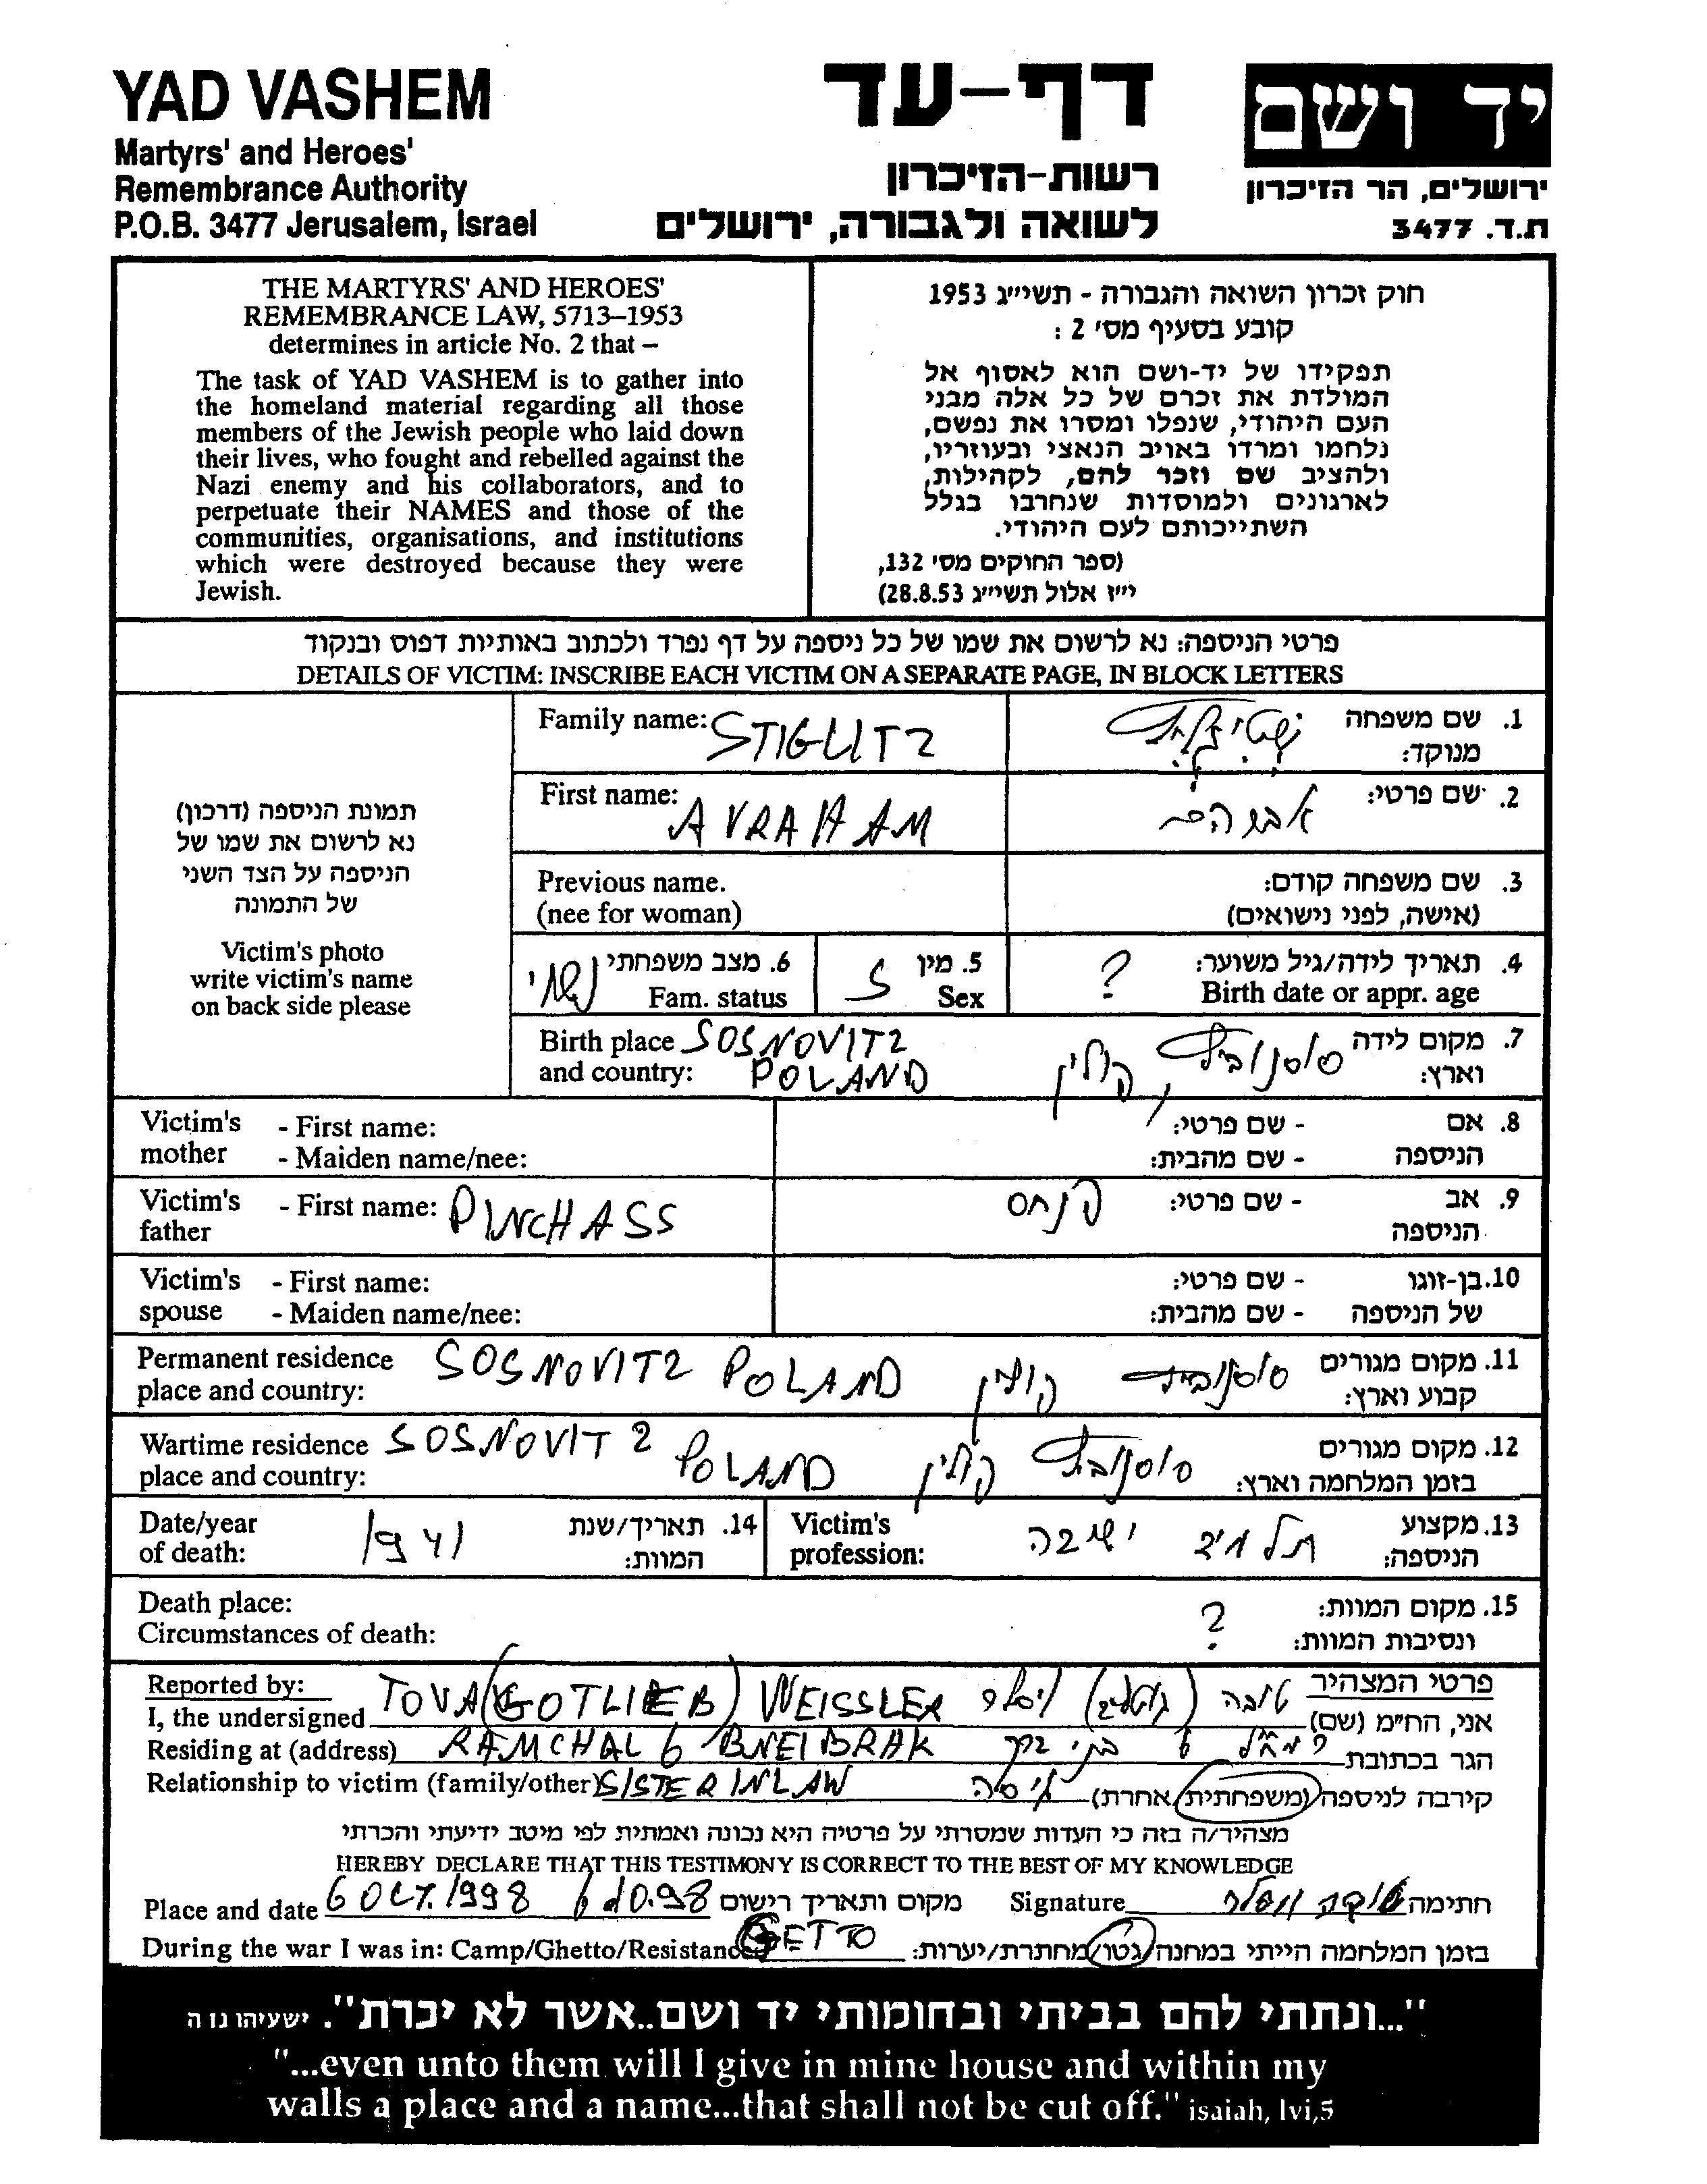 YAD VASHEM
Martyrs' and Heroes'
Remembrance Authority
P.O.B. 3477 Jerusalem, Israel
דף-עד
רשות-הזיכרון
לשואה ולגבורה, ירושלים
יד ושם
ירושלים, הר הזיכרון
ת.ד. 3477
THE MARTYRS' AND HEROES'
REMEMBRANCE LAW, 5713–1953
determines in article No. 2 that –
The task of YAD VASHEM is to gather into
the homeland material regarding all those
members of the Jewish people who laid down
their lives, who fought and rebelled against the
Nazi enemy and his collaborators, and to
perpetuate their NAMES and those of the
communities, organisations, and institutions
which were destroyed because they were
Jewish.
חוק זכרון השואה והגבורה - תשי״ג 1953
קובע בסעיף מס׳ 2 :
תפקידו של יד-ושם הוא לאסוף אל
המולדת את זכרם של כל אלה מבני
העם היהודי, שנפלו ומסרו את נפשם,
נלחמו ומרדו באויב הנאצי ובעוזריו,
ולהציב שם וזכר להם, לקהילות,
לארגונים ולמוסדות שנחרבו בגלל
השתייכותם לעם היהודי.
(ספר החוקים מס׳ 132,
י״ז אלול תשי״ג 28.8.53)
פרטי הניספה: נא לרשום את שמו של כל ניספה על דף נפרד ולכתוב באותיות דפוס ובנקוד
DETAILS OF VICTIM: INSCRIBE EACH VICTIM ON A SEPARATE PAGE, IN BLOCK LETTERS
תמונת הניספה (דרכון)
נא לרשום את שמו של
הניספה על הצד השני
של התמונה
Victim's photo
write victim's name
on back side please
Family name: STIGLITZ שטיגליץ 1. שם משפחה
מנוקד:
First name: AVRAHAM אברהם 2. שם פרטי:
Previous name. 3. שם משפחה קודם:
(nee for woman) (אישה, לפני נישואים)
6. מצב משפחתי נשוי 5. מין ז ? 4. תאריך לידה/גיל משוער:
Fam. status Sex Birth date or appr. age
Birth place SOSNOVITZ סוסנוביץ, פולין 7. מקום לידה
and country: POLAND וארץ:
Victim's - First name: - שם פרטי: 8. אם
mother - Maiden name/nee: - שם מהבית: הניספה
Victim's - First name: PINCHASS פנחס - שם פרטי: 9. אב
father הניספה
Victim's - First name: - שם פרטי: 10. בן-זוגו
spouse - Maiden name/nee: - שם מהבית: של הניספה
Permanent residence SOSNOVITZ POLAND סוסנוביץ פולין 11. מקום מגורים
place and country: קבוע וארץ:
Wartime residence SOSNOVITZ POLAND סוסנוביץ פולין 12. מקום מגורים
place and country: בזמן המלחמה וארץ:
Date/year 1941 14. תאריך/שנת Victim's תלמיד ישיבה 13. מקצוע
of death: המוות: profession: הניספה:
Death place: ? 15. מקום המוות:
Circumstances of death: ונסיבות המוות:
Reported by: פרטי המצהיר
I, the undersigned TOVA (GOTLIEB) WEISSLER טובה (גוטליב) ויסלר אני, הח״מ (שם)
Residing at (address) RAMCHAL 6 BNEI BRAK רמחל 6 בני ברק הגר בכתובת
Relationship to victim (family/other) SISTER IN LAW גיסה קירבה לניספה (משפחתית/אחרת)
מצהיר/ה בזה כי העדות שמסרתי על פרטיה היא נכונה ואמתית לפי מיטב ידיעתי והכרתי
HEREBY DECLARE THAT THIS TESTIMONY IS CORRECT TO THE BEST OF MY KNOWLEDGE
Place and date 6 OCT. 1998 6.10.98 מקום ותאריך רישום Signature טובה ויסלר חתימה
During the war I was in: Camp/Ghetto/Resistance GETTO בזמן המלחמה הייתי במחנה/גטו/מחתרת/יערות:
"...ונתתי להם בביתי ובחומותי יד ושם..אשר לא יכרת". ישעיהו נו ה
"...even unto them will I give in mine house and within my
walls a place and a name...that shall not be cut off." isaiah, lvi,5